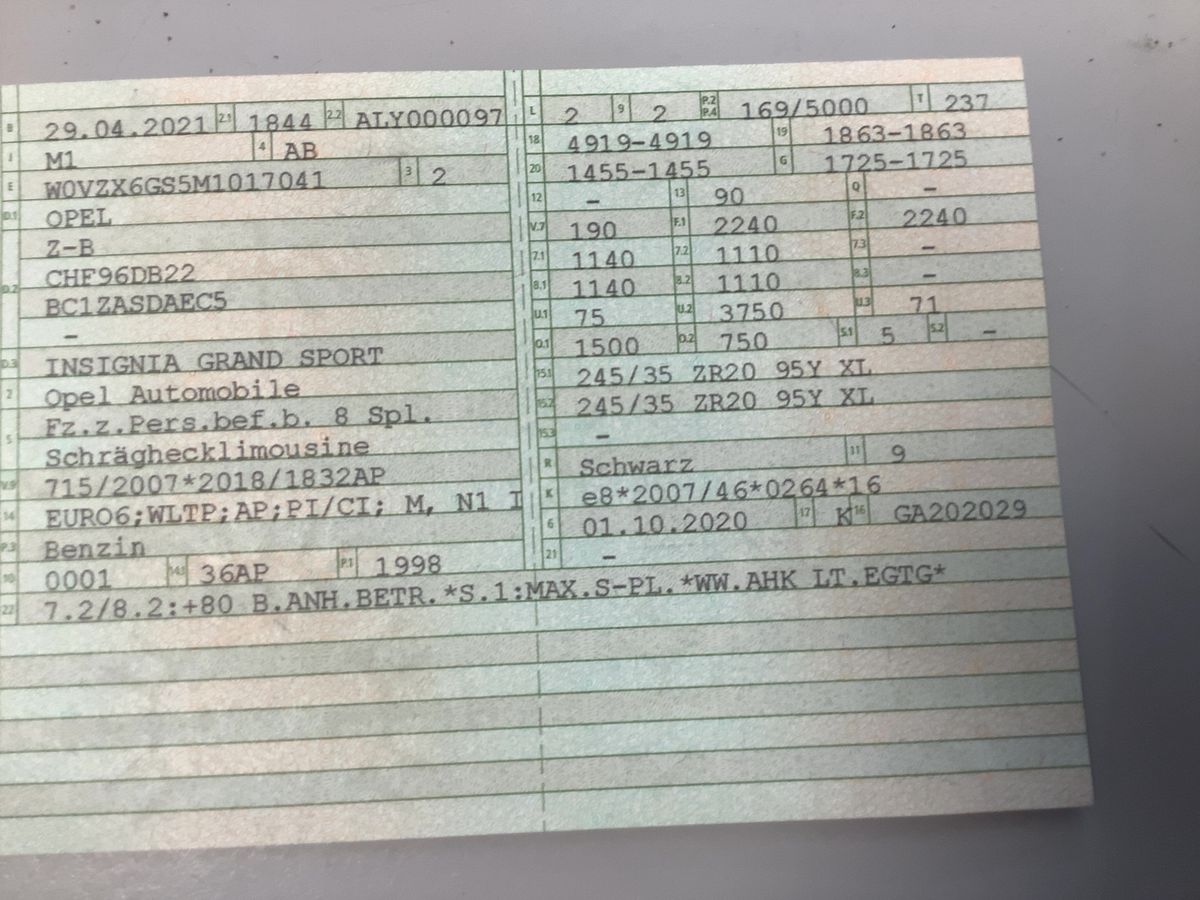 B 29.04.2021 2.1 1844 2.2 ALY000097
J M1 4 AB
E W0VZX6GS5M1017041 3 2
D.1 OPEL
Z-B
D.2 CHF96DB22
BC1ZASDAEC5
–
D.3 INSIGNIA GRAND SPORT
2 Opel Automobile
5 Fz.z.Pers.bef.b. 8 Spl.
Schräghecklimousine
V.9 715/2007*2018/1832AP
14 EURO6;WLTP;AP;PI/CI; M, N1 I
P.3 Benzin
10 0001 14.1 36AP P.1 1998
22 7.2/8.2:+80 B.ANH.BETR.*S.1:MAX.S-PL.*WW.AHK LT.EGTG*
L 2 9 2 P.2 P.4 169/5000 T 237
18 4919-4919 19 1863-1863
20 1455-1455 G 1725-1725
12 – 13 90 Q –
V.7 190 F.1 2240 F.2 2240
7.1 1140 7.2 1110 7.3 –
8.1 1140 8.2 1110 8.3 –
U.1 75 U.2 3750 U.3 71
O.1 1500 O.2 750 S.1 5 S.2 –
15.1 245/35 ZR20 95Y XL
15.2 245/35 ZR20 95Y XL
15.3 –
R Schwarz 11 9
K e8*2007/46*0264*16
6 01.10.2020 17 K 16 GA202029
21 –